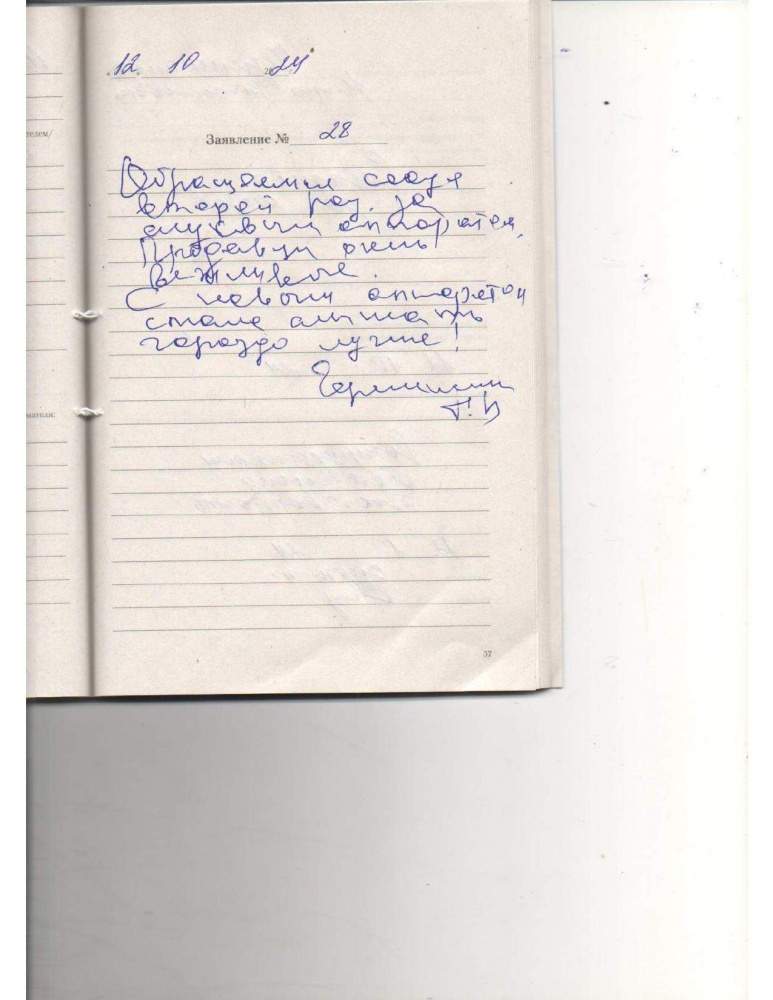 12. 10 2024
телем/
Заявление № 28
Обращаемся сюда
второй раз за
слуховым аппаратом.
Продавцы очень
вежливые.
С новым аппаратом
стала слышать
гораздо лучше!
Т.В
мателя:
57